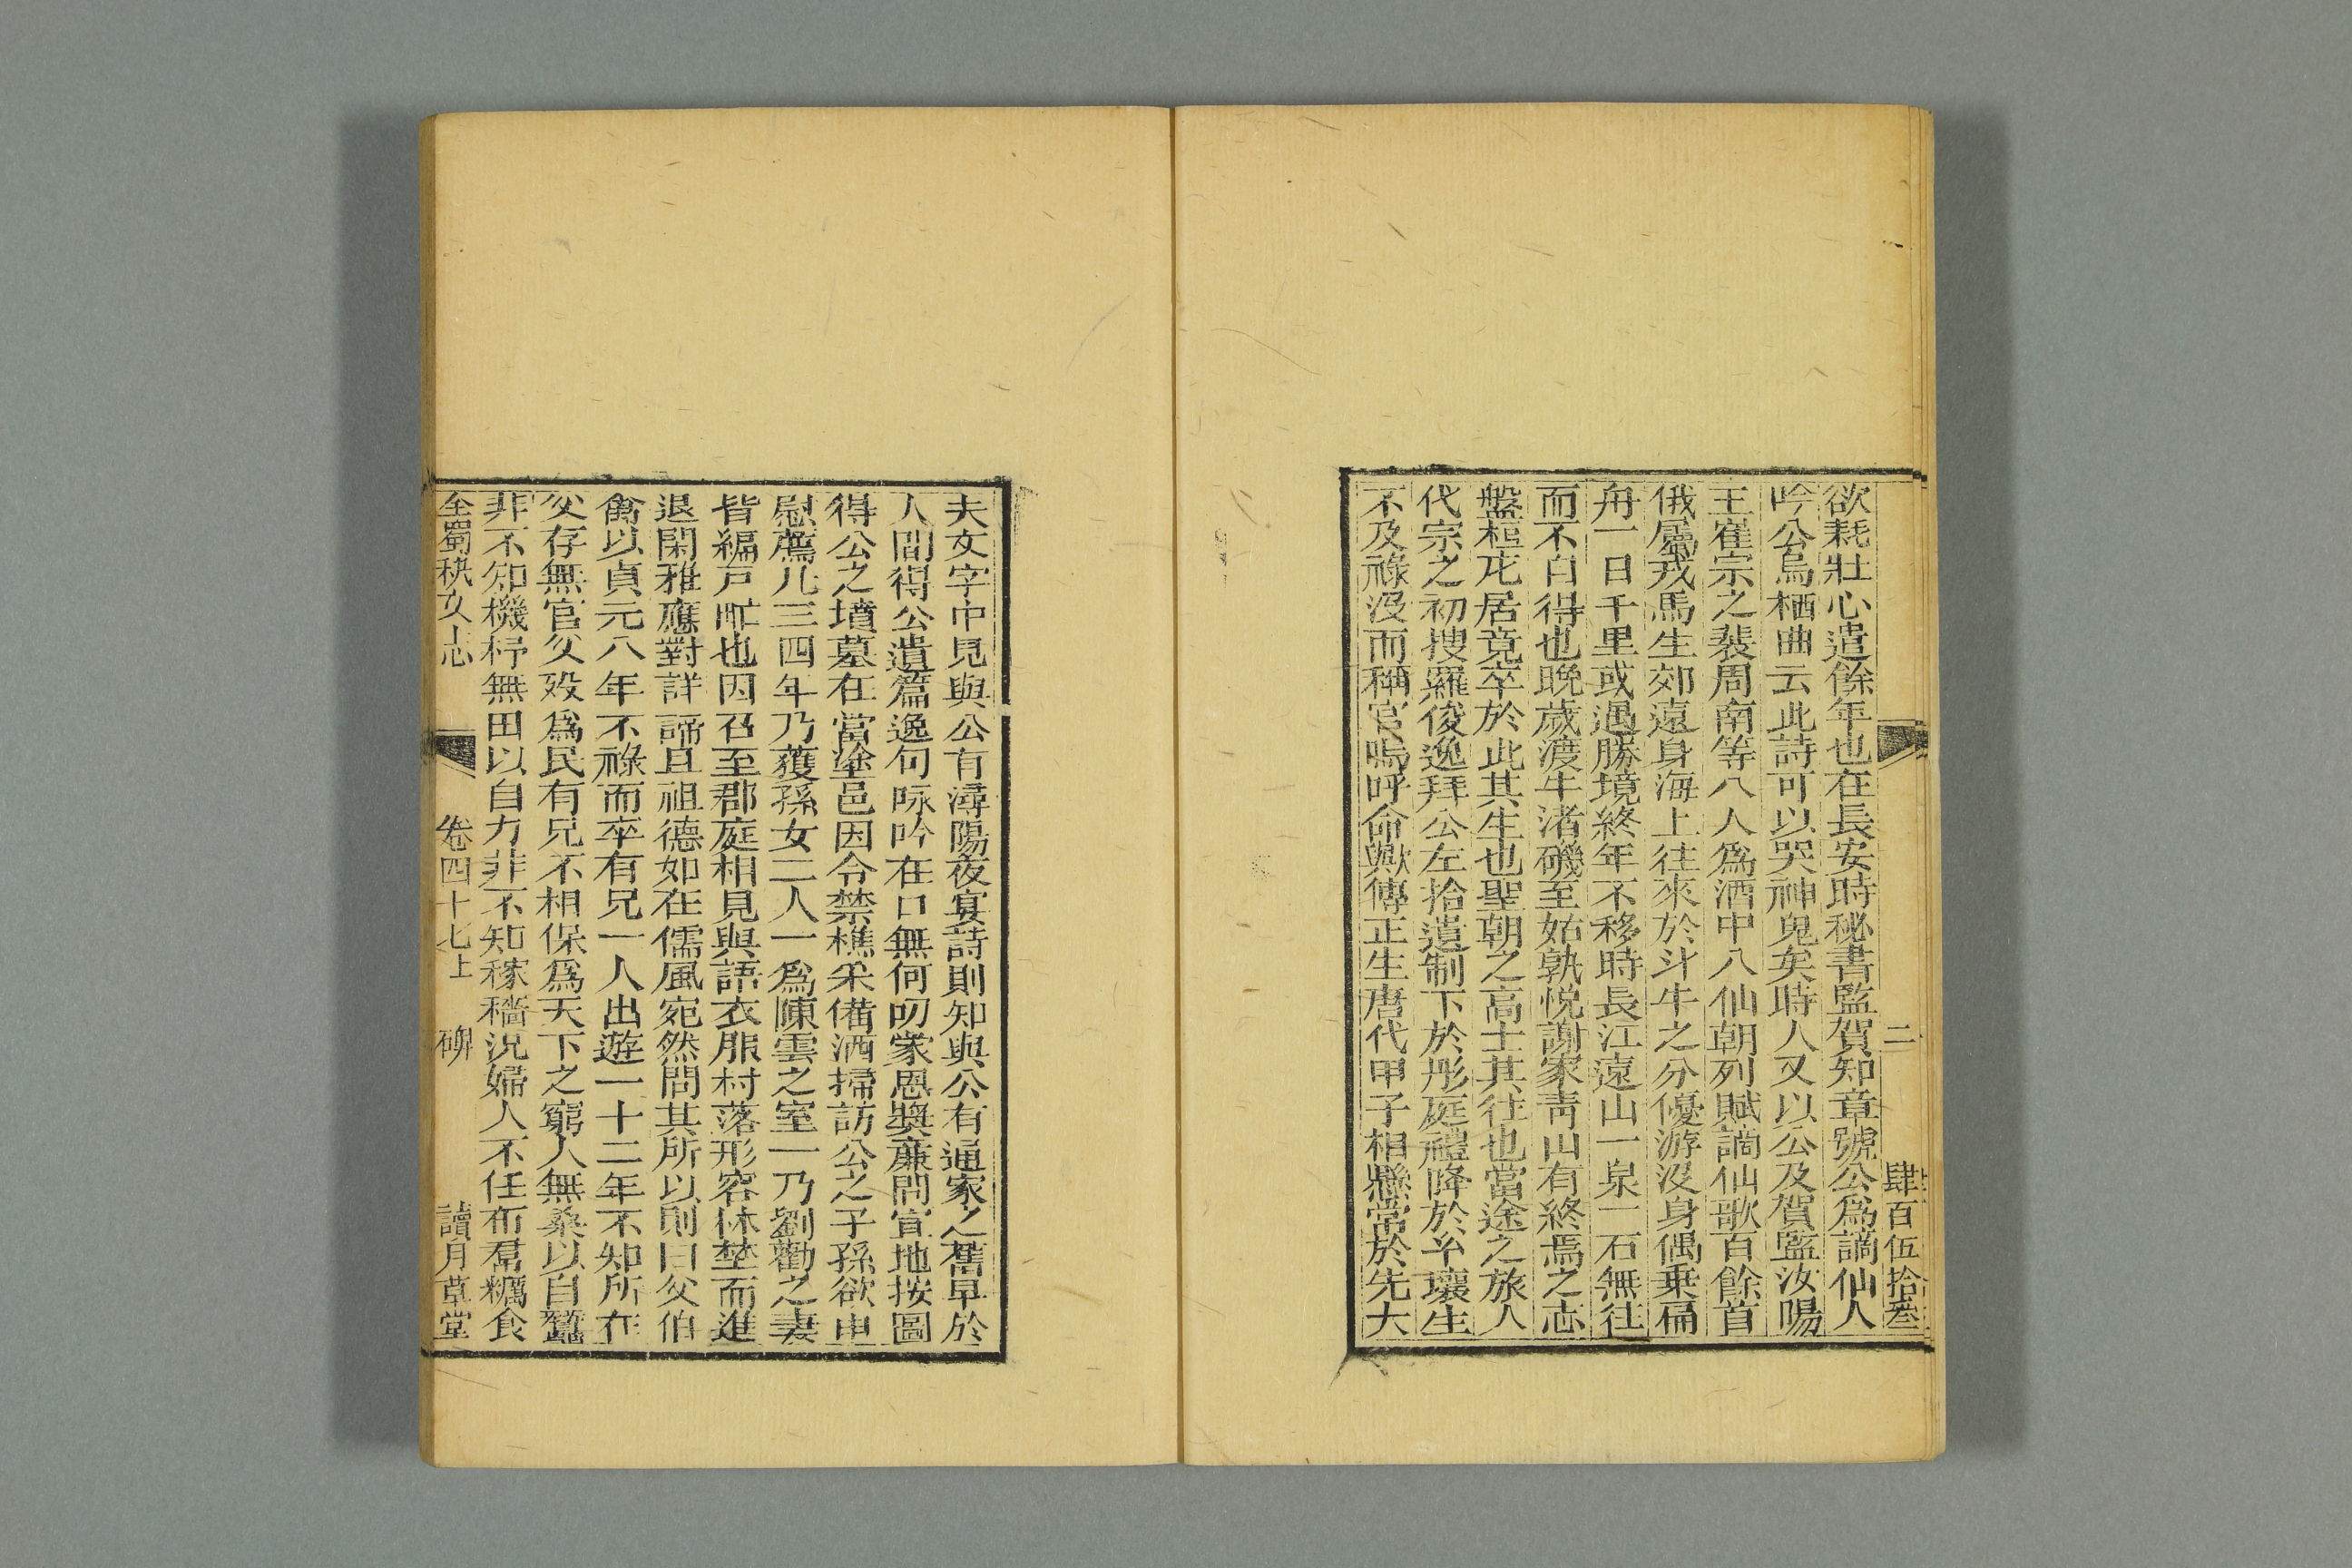 二 肆百伍拾叁
欲耗壯心遣餘年也在長安時秘書監賀知章號公爲謫仙人
吟公烏栖曲云此詩可以哭神鬼矣時人又以公及賀監汝陽
王崔宗之裴周南等八人爲酒中八仙朝列賦謫仙歌百餘首
俄屬戎馬生郊遠身海上往來於斗牛之分優游沒身偶乗扁
舟一日千里或遇勝境終年不移時長江遠山一泉一石無往
而不自得也晚歲渡牛渚磯至姑孰悅謝家靑山有終焉之志
盤桓庀居竟卒於此其生也聖朝之高士其往也當途之旅人
代宗之初搜羅俊逸拜公左拾遺制下於彤庭禮降於玄壤生
不及祿沒而稱官嗚呼命歟傳正生唐代甲子相懸常於先大
夫文字中見與公有潯陽夜宴詩則知與公有通家之舊早於
人間得公遺篇逸句咏吟在口無何叨蒙恩奬亷問宣地按圖
得公之墳墓在當塗邑因令禁樵采備洒掃訪公之子孫欲申
慰薦凡三四年乃獲孫女二人一爲陳雲之室一乃劉勸之妻
皆編戸甿也因召至郡庭相見與語衣服村落形容朴埜而進
退閑雅應對詳諦且祖德如在儒風宛然問其所以則曰父伯
禽以貞元八年不祿而卒有兄一人出遊一十二年不知所在
父存無官父歿爲民有兄不相保爲天下之窮人無桑以自蠶
非不知機杼無田以自力非不知稼穡況婦人不任布帬糲食
全蜀秇文志 卷四十七上 碑 讀月草堂